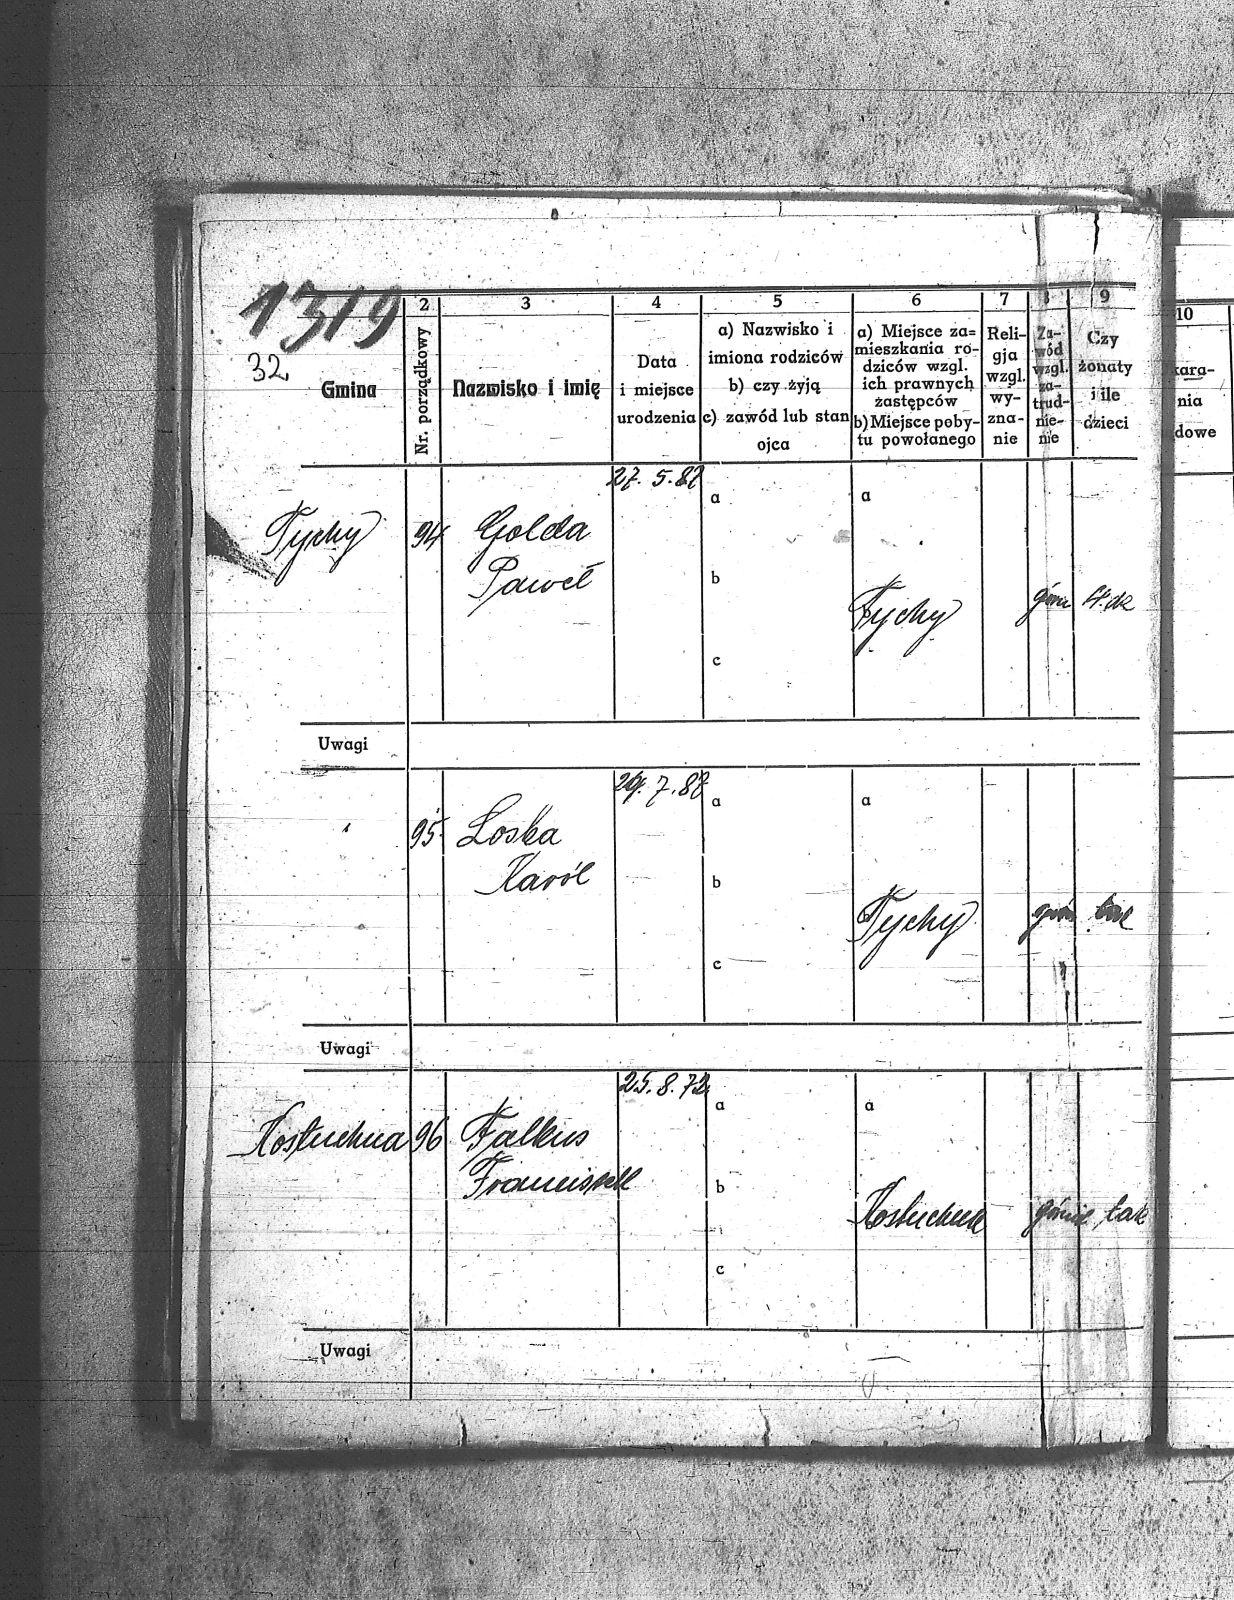 1319
32
2 3 4 5 6 7 8 9 10
Gmina
Nr. porządkowy
Nazwisko i imię
Data
i miejsce
urodzenia
a) Nazwisko i
imiona rodziców
b) czy żyją
c) zawód lub stan
ojca
a) Miejsce za=
mieszkania ro-
dziców wzgl.
ich prawnych
zastępców
b) Miejsce poby-
tu powołanego
Reli-
gja
wzgl.
wy-
zna-
nie
Za-
wód
wzgl.
za-
trud-
nie-
nie
Czy
żonaty
i ile
dzieci
kara-
nia
dowe
27. 5. 87
a a
Tychy 94 Golda
Paweł
b
Tychy górn 4. dz
c
Uwagi
29. 7. 88
a a
" 95 Loska
Karól
b
Tychy górn tak
c
Uwagi
25. 8. 72
a a
Kostuchna 96 Falkus
Franciszek
b
Kostuchna górnik tak
c
Uwagi